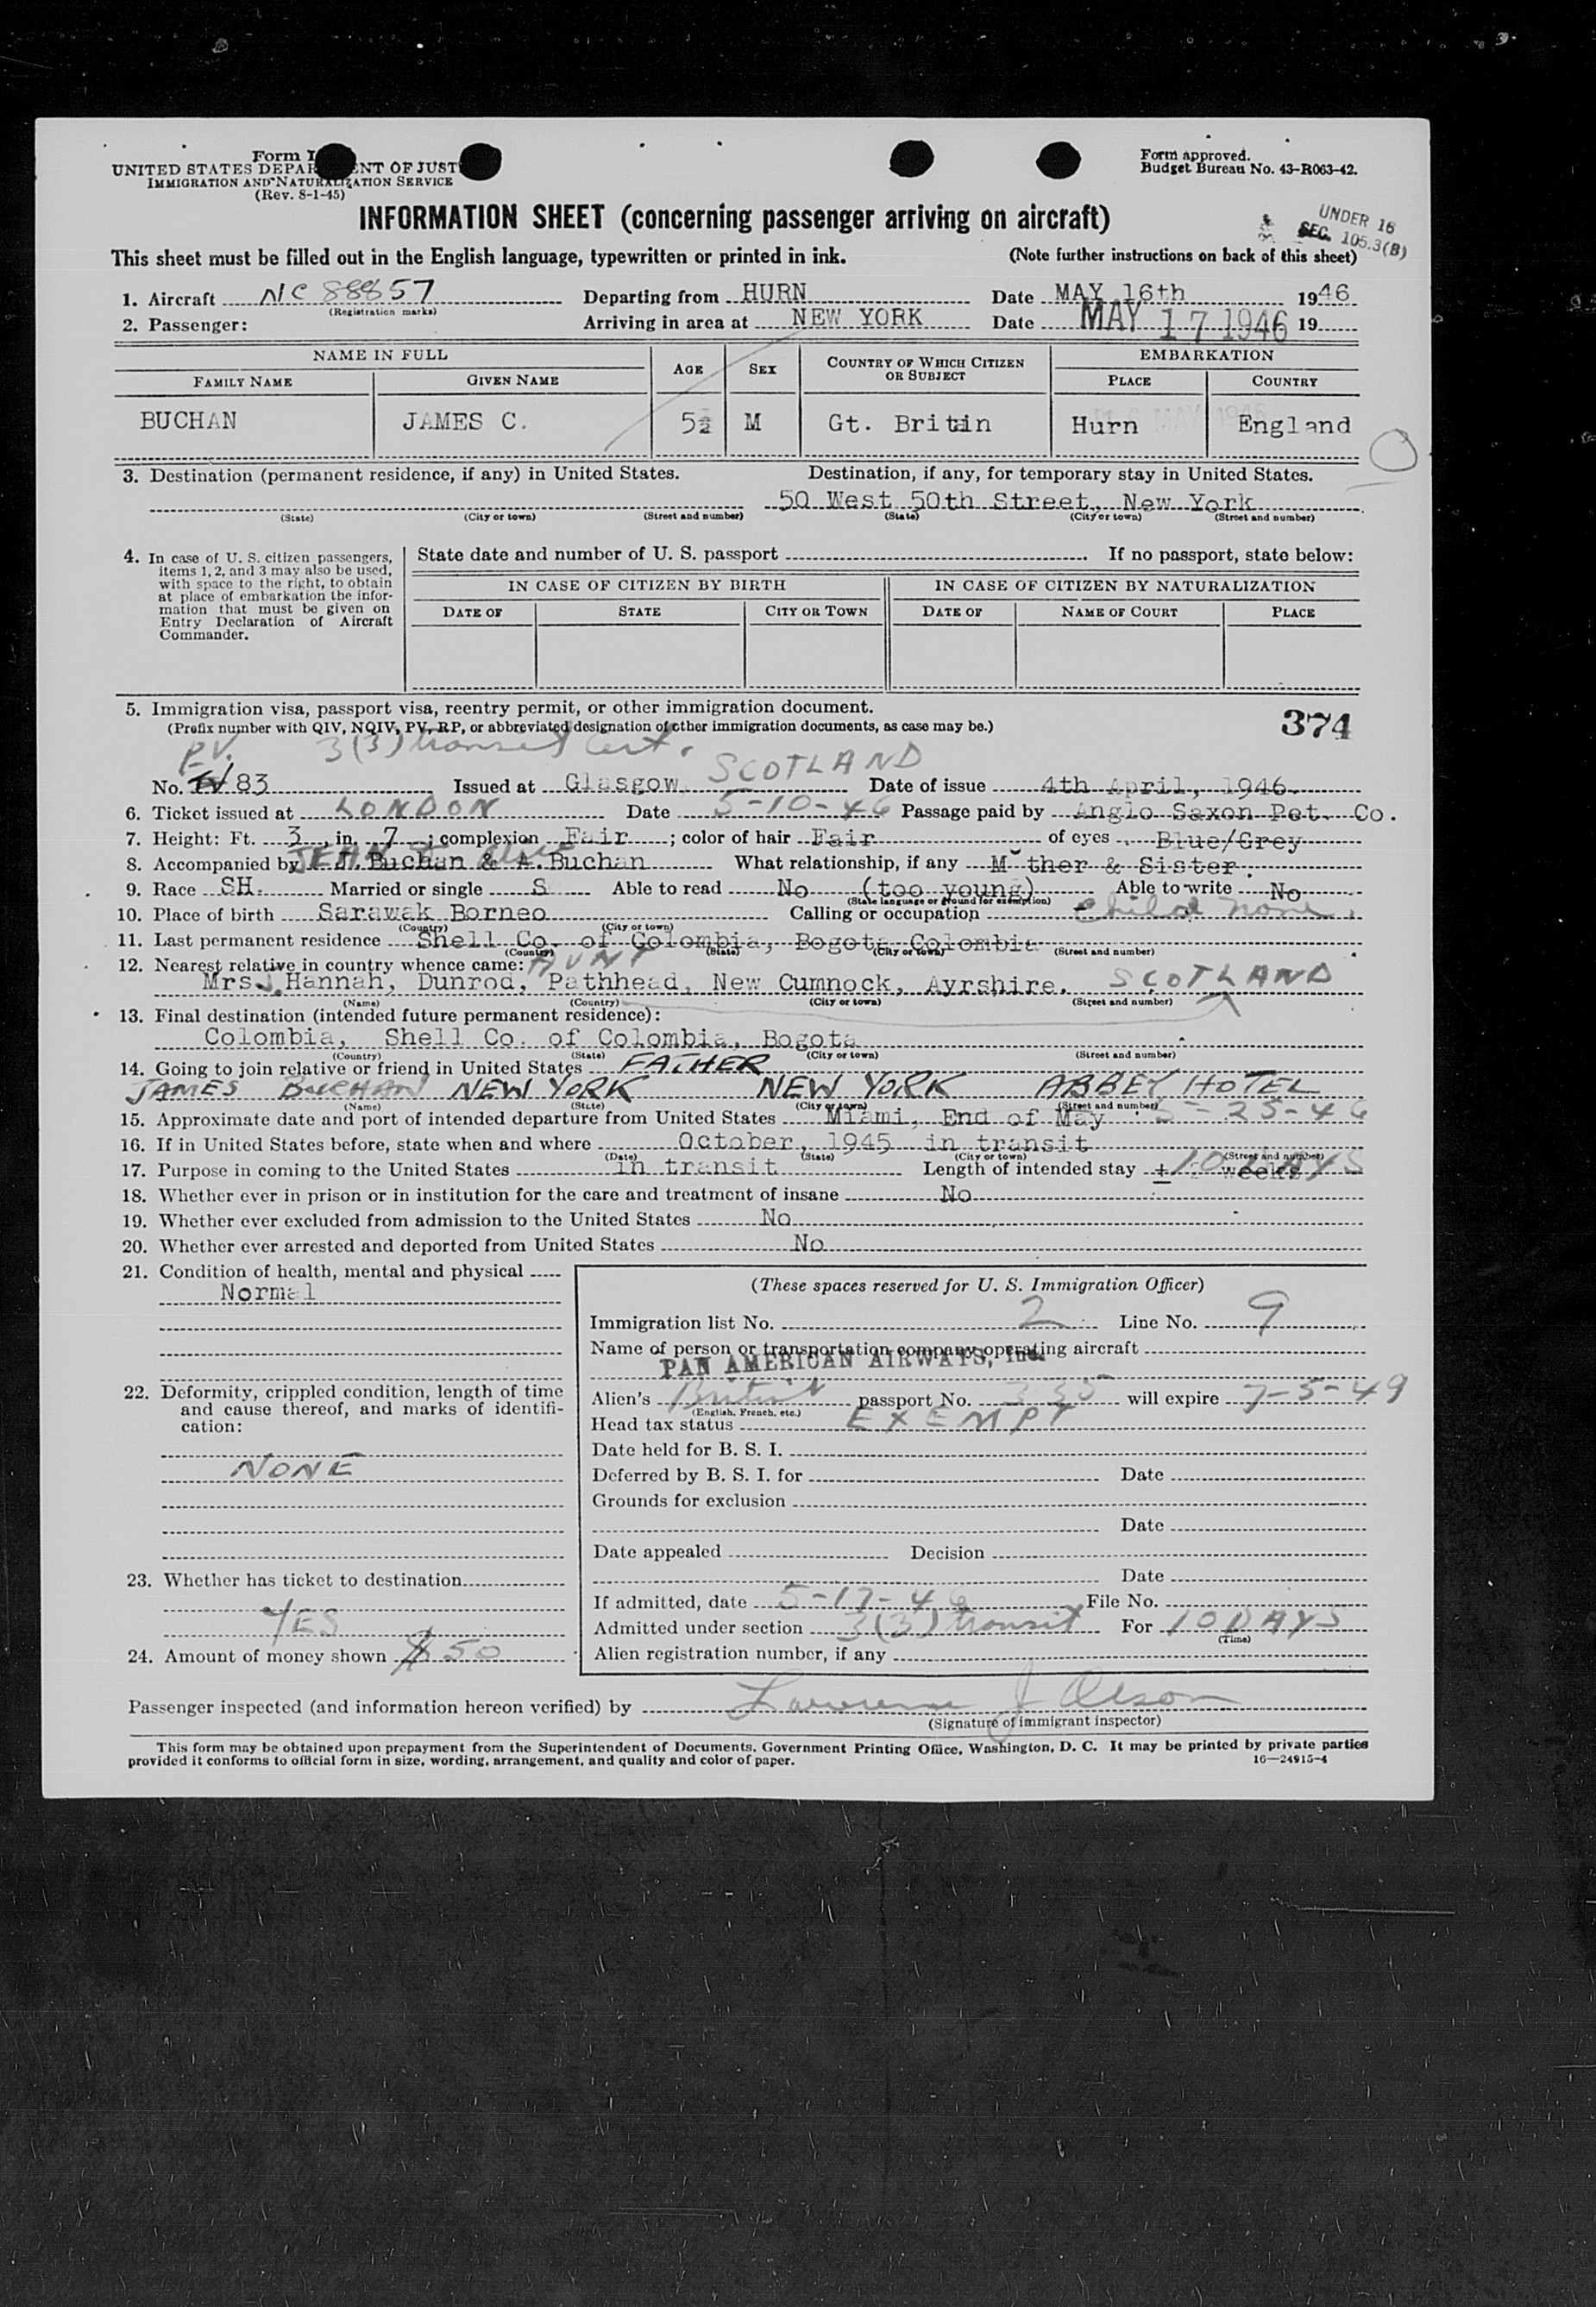 Form I
UNITED STATES DEPAR ENT OF JUST
IMMIGRATION AND NATURALIZATION SERVICE
(Rev. 8-1-45)
Form approved.
Budget Bureau No. 43-R063-42.
INFORMATION SHEET (concerning passenger arriving on aircraft)
UNDER 16
SEC. 105.3(B)
This sheet must be filled out in the English language, typewritten or printed in ink. (Note further instructions on back of this sheet)
1. Aircraft NC 88857 Departing from HURN Date MAY 16th 1946
(Registration marks)
2. Passenger: Arriving in area at NEW YORK Date MAY 17 1946 19
NAME IN FULL AGE SEX COUNTRY OF WHICH CITIZEN OR SUBJECT EMBARKATION
FAMILY NAME GIVEN NAME PLACE COUNTRY
BUCHAN JAMES C. 5½ M Gt. Britin Hurn England
3. Destination (permanent residence, if any) in United States. Destination, if any, for temporary stay in United States.
50 West 50th Street, New York
(State) (City or town) (Street and number) (State) (City or town) (Street and number)
4. In case of U. S. citizen passengers, items 1, 2, and 3 may also be used, with space to the right, to obtain at place of embarkation the information that must be given on Entry Declaration of Aircraft Commander.
State date and number of U. S. passport If no passport, state below:
IN CASE OF CITIZEN BY BIRTH IN CASE OF CITIZEN BY NATURALIZATION
DATE OF STATE CITY OR TOWN DATE OF NAME OF COURT PLACE
5. Immigration visa, passport visa, reentry permit, or other immigration document.
(Prefix number with QIV, NQIV, PV, RP, or abbreviated designation of other immigration documents, as case may be.)
374
P.V. 3(3) transit Cert. SCOTLAND
No. 83 Issued at Glasgow Date of issue 4th April, 1946.
6. Ticket issued at LONDON Date 5-10-46 Passage paid by Anglo Saxon Pet. Co.
7. Height: Ft. 3 in. 7; complexion Fair; color of hair Fair of eyes Blue/Grey
8. Accompanied by JEAN Buchan & A. Buchan What relationship, if any M ther & Sister.
9. Race SH. Married or single S Able to read No (too young) Able to write No
(State language or ground for exemption)
10. Place of birth Sarawak Borneo Calling or occupation Child none.
(Country) (City or town)
11. Last permanent residence Shell Co. of Colombia, Bogota Colombia
(Country) (State) (City or town) (Street and number)
12. Nearest relative in country whence came: AUNT
Mrs. J. Hannah, Dunrod, Pathhead, New Cumnock, Ayrshire. SCOTLAND
(Name) (Country) (City or town) (Street and number)
13. Final destination (intended future permanent residence):
Colombia, Shell Co. of Colombia, Bogota
(Country) (State) (City or town) (Street and number)
14. Going to join relative or friend in United States FATHER
JAMES BUCHAN NEW YORK NEW YORK ABBEY HOTEL
(Name) (State) (City or town) (Street and number)
15. Approximate date and port of intended departure from United States Miami, End of May 5-25-46
16. If in United States before, state when and where October, 1945 in transit
(Date) (State) (City or town) (Street and number)
17. Purpose in coming to the United States in transit Length of intended stay ± 10 DAYS weeks
18. Whether ever in prison or in institution for the care and treatment of insane No
19. Whether ever excluded from admission to the United States No
20. Whether ever arrested and deported from United States No
21. Condition of health, mental and physical
Normal
22. Deformity, crippled condition, length of time and cause thereof, and marks of identification:
NONE
23. Whether has ticket to destination
YES
24. Amount of money shown $50
(These spaces reserved for U. S. Immigration Officer)
Immigration list No. 2 Line No. 9
Name of person or transportation company operating aircraft
PAN AMERICAN AIRWAYS, Inc.
Alien's British passport No. 335 will expire 7-5-49
(English, French, etc.)
Head tax status EXEMPT
Date held for B. S. I.
Deferred by B. S. I. for Date
Grounds for exclusion
Date
Date appealed Decision
Date
If admitted, date 5-17-46 File No.
Admitted under section 3(3) transit For 10 DAYS
(Time)
Alien registration number, if any
Passenger inspected (and information hereon verified) by Lawrence J Olson
(Signature of immigrant inspector)
This form may be obtained upon prepayment from the Superintendent of Documents, Government Printing Office, Washington, D. C. It may be printed by private parties
provided it conforms to official form in size, wording, arrangement, and quality and color of paper. 16—24915-4